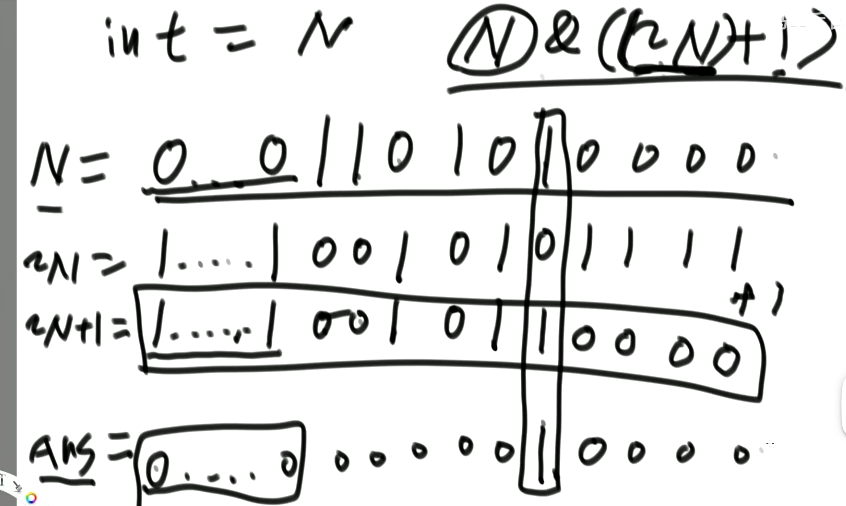 int = N N & ((~N)+1)
N = 0...0 1 1 0 1 0 1 0 0 0 0
~N = 1.....1 0 0 1 0 1 0 1 1 1 1
+1
~N+1 = 1.....1 0 0 1 0 1 1 0 0 0 0
Ans = 0.....0 0 0 0 0 0 1 0 0 0 0